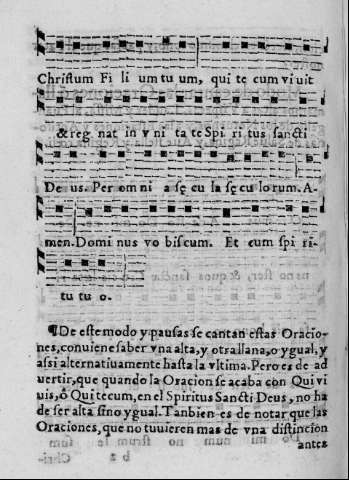 Christum Fi li um tu um, qui te cum vi uit
& reg nat in v ni ta te Spi ri tus sancti
De us. Per om ni a sę cu la sę cu lorum. A-
men. Domi nus vo bis cum. Et cum spi ri-
tu tu o.
¶De este modo y pausas se cantan estas Oracio-
nes, conuiene saber vna alta, y otra llana, o ygual, y
assi alternatiuamente hasta la vltima. Pero es de ad
uertir, que quando la Oracion se acaba con Qui vi
uis, ò Qui tecum, en el Spiritus Sancti Deus, no ha
de ser alta sino ygual. Tanbien es de notar que las
Oraciones, que no tuuieren mas de vna distincion
antes